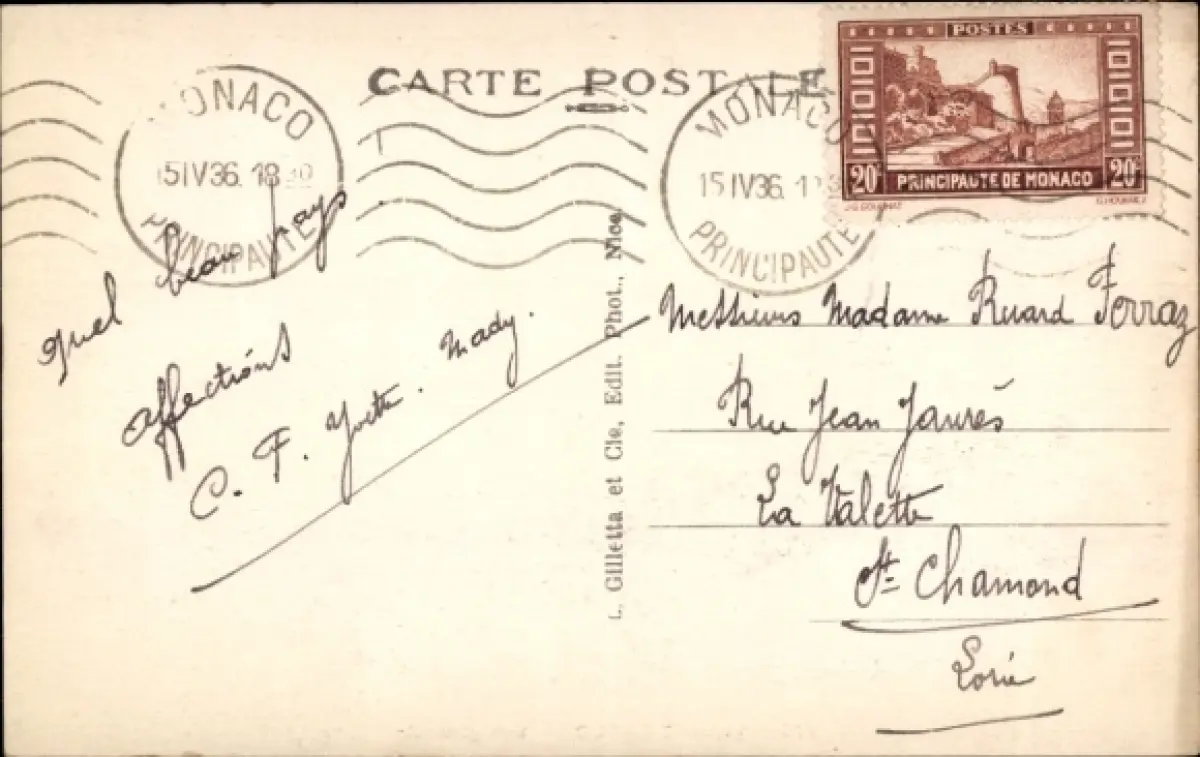 CARTE POSTALE
MONACO
15 IV 36 18
PRINCIPAUTE
MONACO
15 IV 36
PRINCIPAUTE
POSTES
20c
PRINCIPAUTE DE MONACO
20c
quel beau pays.
affections
C. F. Yvette. Mady.
L. Gilletta et Cie, Edit. Phot., Nice
Messieurs Madame Ferraz
Rue Jean Jaurès
La Valette
St- Chamond
Loire